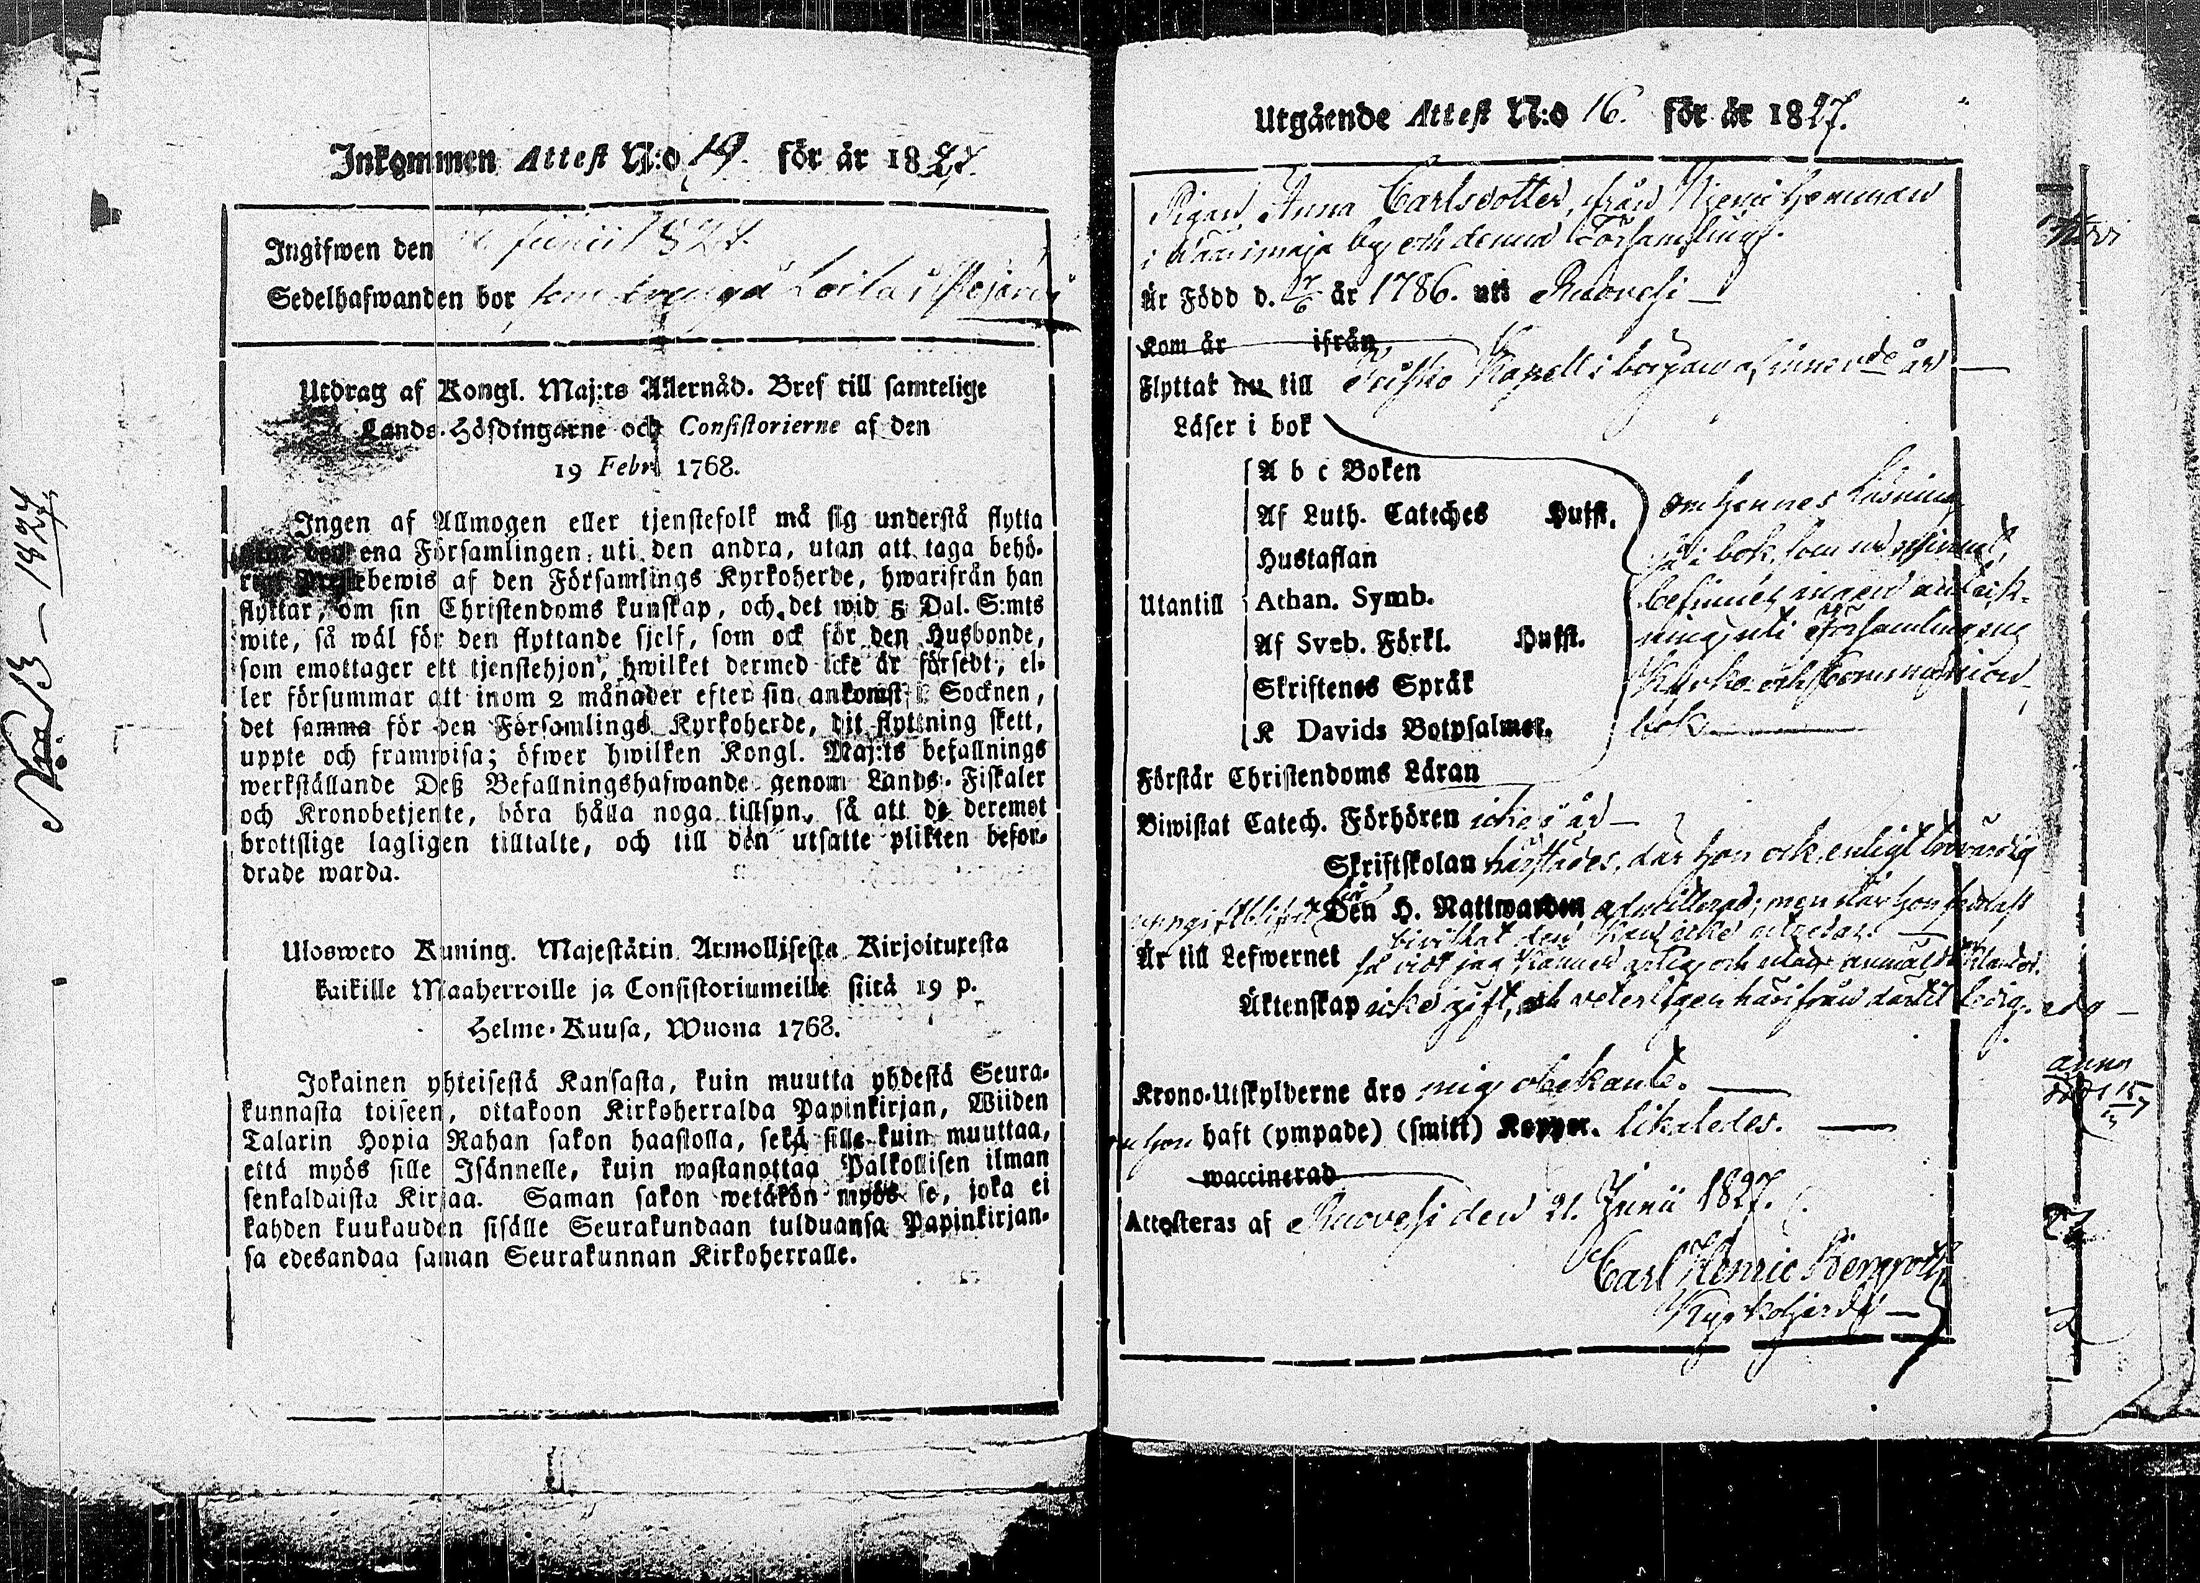 Inkommen Attest N:o 19. för år 1827.
Ingifwen den Junii 1827.
Sedelhafwanden bor som
Utdrag af Kongl. Maj:ts Allernåd. Bref till samtelige
Lands-Höfdingarne och Consistorierne af den
19 Febr. 1768.
Ingen af Allmogen eller tjenstefolk må sig understå flytta
ena Församlingen uti den andra, utan att taga behö-
bewis af den Församlings Kyrkoherde, hwarifrån han
flyttar, om sin Christendoms kunskap, och det wid 5 Dal. S:mts
wite, så wäl för den flyttande sjelf, som ock för den Husbonde,
som emottager ett tjenstehjon, hwilket dermed icke är försedt, el-
ler försummar att inom 2 månader efter sin ankomst i Socknen,
det samma för den Församlings Kyrkoherde, dit flyttning skett,
uppte och framwisa; öfwer hwilken Kongl. Maj:ts befallnings
werkställande Deß Befallningshafwande genom Lands-Fiskaler
och Kronobetjente, böra hålla noga tillsyn, så att de deremot
brottslige lagligen tilltalte, och till den utsatte plikten befor-
drade warda.
Ulosweto Kuning. Majestätin Armollisesta Kirjoituxesta
kaikille Maaherroille ja Consistoriumeille siitä 19 p.
Helme-Kuusa, Wuona 1768.
Jokainen yhteisestä Kansasta, kuin muutta yhdestä Seura-
kunnasta toiseen, ottakoon Kirkoherralda Papinkirjan, Wiiden
Talarin Hopia Rahan sakon haastolla, sekä sille kuin muuttaa,
että myös sille Isännelle, kuin wastanottaa Palkollisen ilman
senkaldaista Kirjaa. Saman sakon wetäkön myös se, joka ei
kahden kuukauden sisälle Seurakundaan tulduansa Papinkirjan-
sa edesandaa saman Seurakunnan Kirkoherralle.
Utgående Attest N:o 16. för år 1827.
Pigan Anna Carlsdotter, från Niemi Hemman
i by och denna Församling.
Är Född d. år 1786. uti Ruovesi
Kom år ifrån
Flyttat nu till Kuru Kapell i början af innev:de år
Läser i bok
A b c Boken
Af Luth. Cateches Hufst.
Hustaflan
Utantill Athan. Symb.
Af Sveb. Förkl. Hufst.
Skriftenes Språk
K Davids Botpsalmer.
om hennes Läsning
så i bok, som ur minnet,
befinnes ingen anteck-
ning uti Församlingens
Kyrko- och Communion-
bok
Förstår Christendoms Läran
Biwistat Catech. Förhören icke i år
Skriftskolan härstädes, där hon ock, enligt trovärdig
uppgift blifvit till Den H. Nattwarden admitterad; men när hon sednast
bivistat den kan icke utredas.
Är till Lefwernet så vidt jag känner ärlig och utan anmäldt klander.
Äktenskap icke gift, och veterligen härifrån därtil ledig.
Krono-Utskylderne äro mig obekante.
om hon haft (ympade) (smitt) Koppor. likaledes.
waccinerad
Attesteras af Ruovesi den 21. Junii 1827.
Carl Henric Bergroth
Kyrkoherde